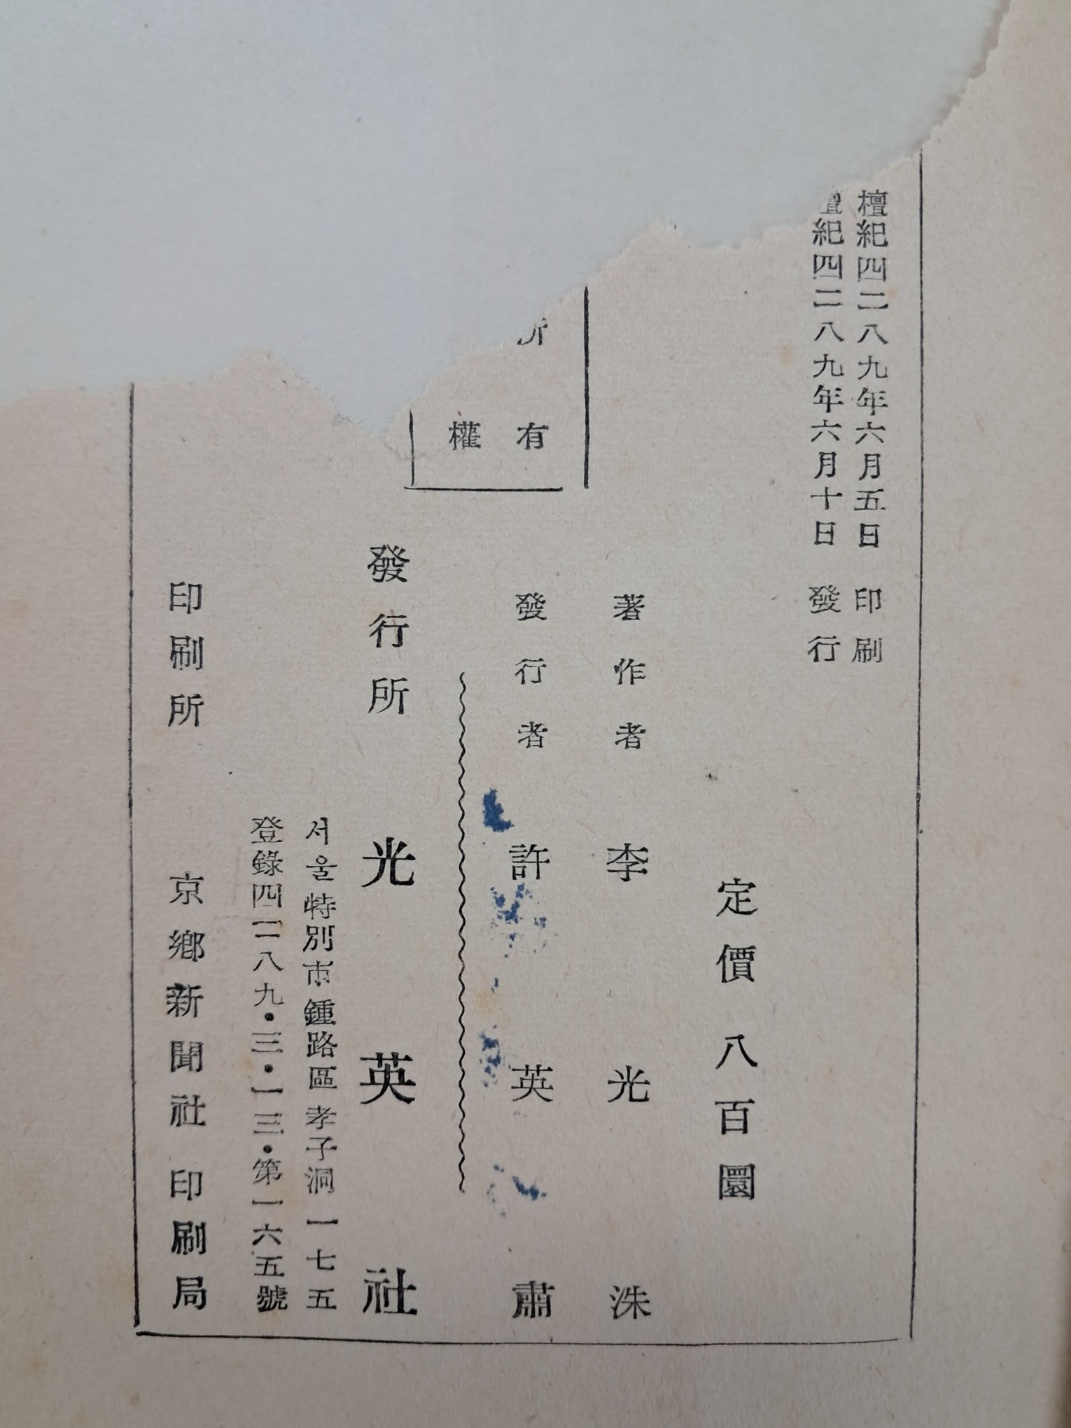 檀紀四二八九年六月五日 印刷
檀紀四二八九年六月十日 發行
定價 八百圜
著作者 李光洙
發行者 許英肅
所有
權
發行所 光英社
서울特別市鍾路區孝子洞一七五
登錄四二八九・三・一三・第一六五號
印刷所 京鄕新聞社 印刷局